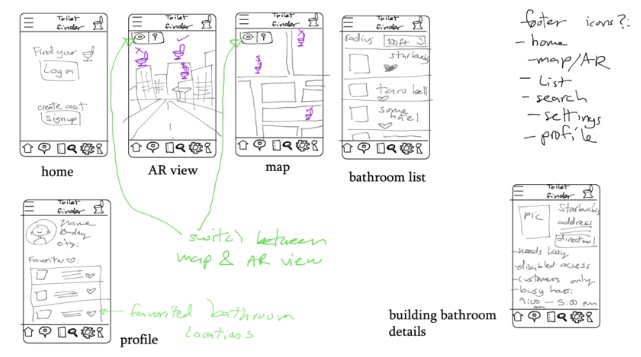 Toilet
finder
Find your
Login
create acct
signup
home
Toilet
finder
AR view
Toilet
finder
map
Toilet
finder
radius
100ft
starbucks
taco bell
some
hotel
bathroom list
footer icons?:
- home
- map/AR
- List
- search
- settings
- profile
switch between
map & AR view
Toilet
finder
Name
Bday
city
Favorites
favorited bathroom
locations
profile
Toilet
finder
pic
Starbucks
address
directions
- needs key
- disabled access
- customers only
- busy hours:
9:00 am - 5:00 pm
building bathroom
details